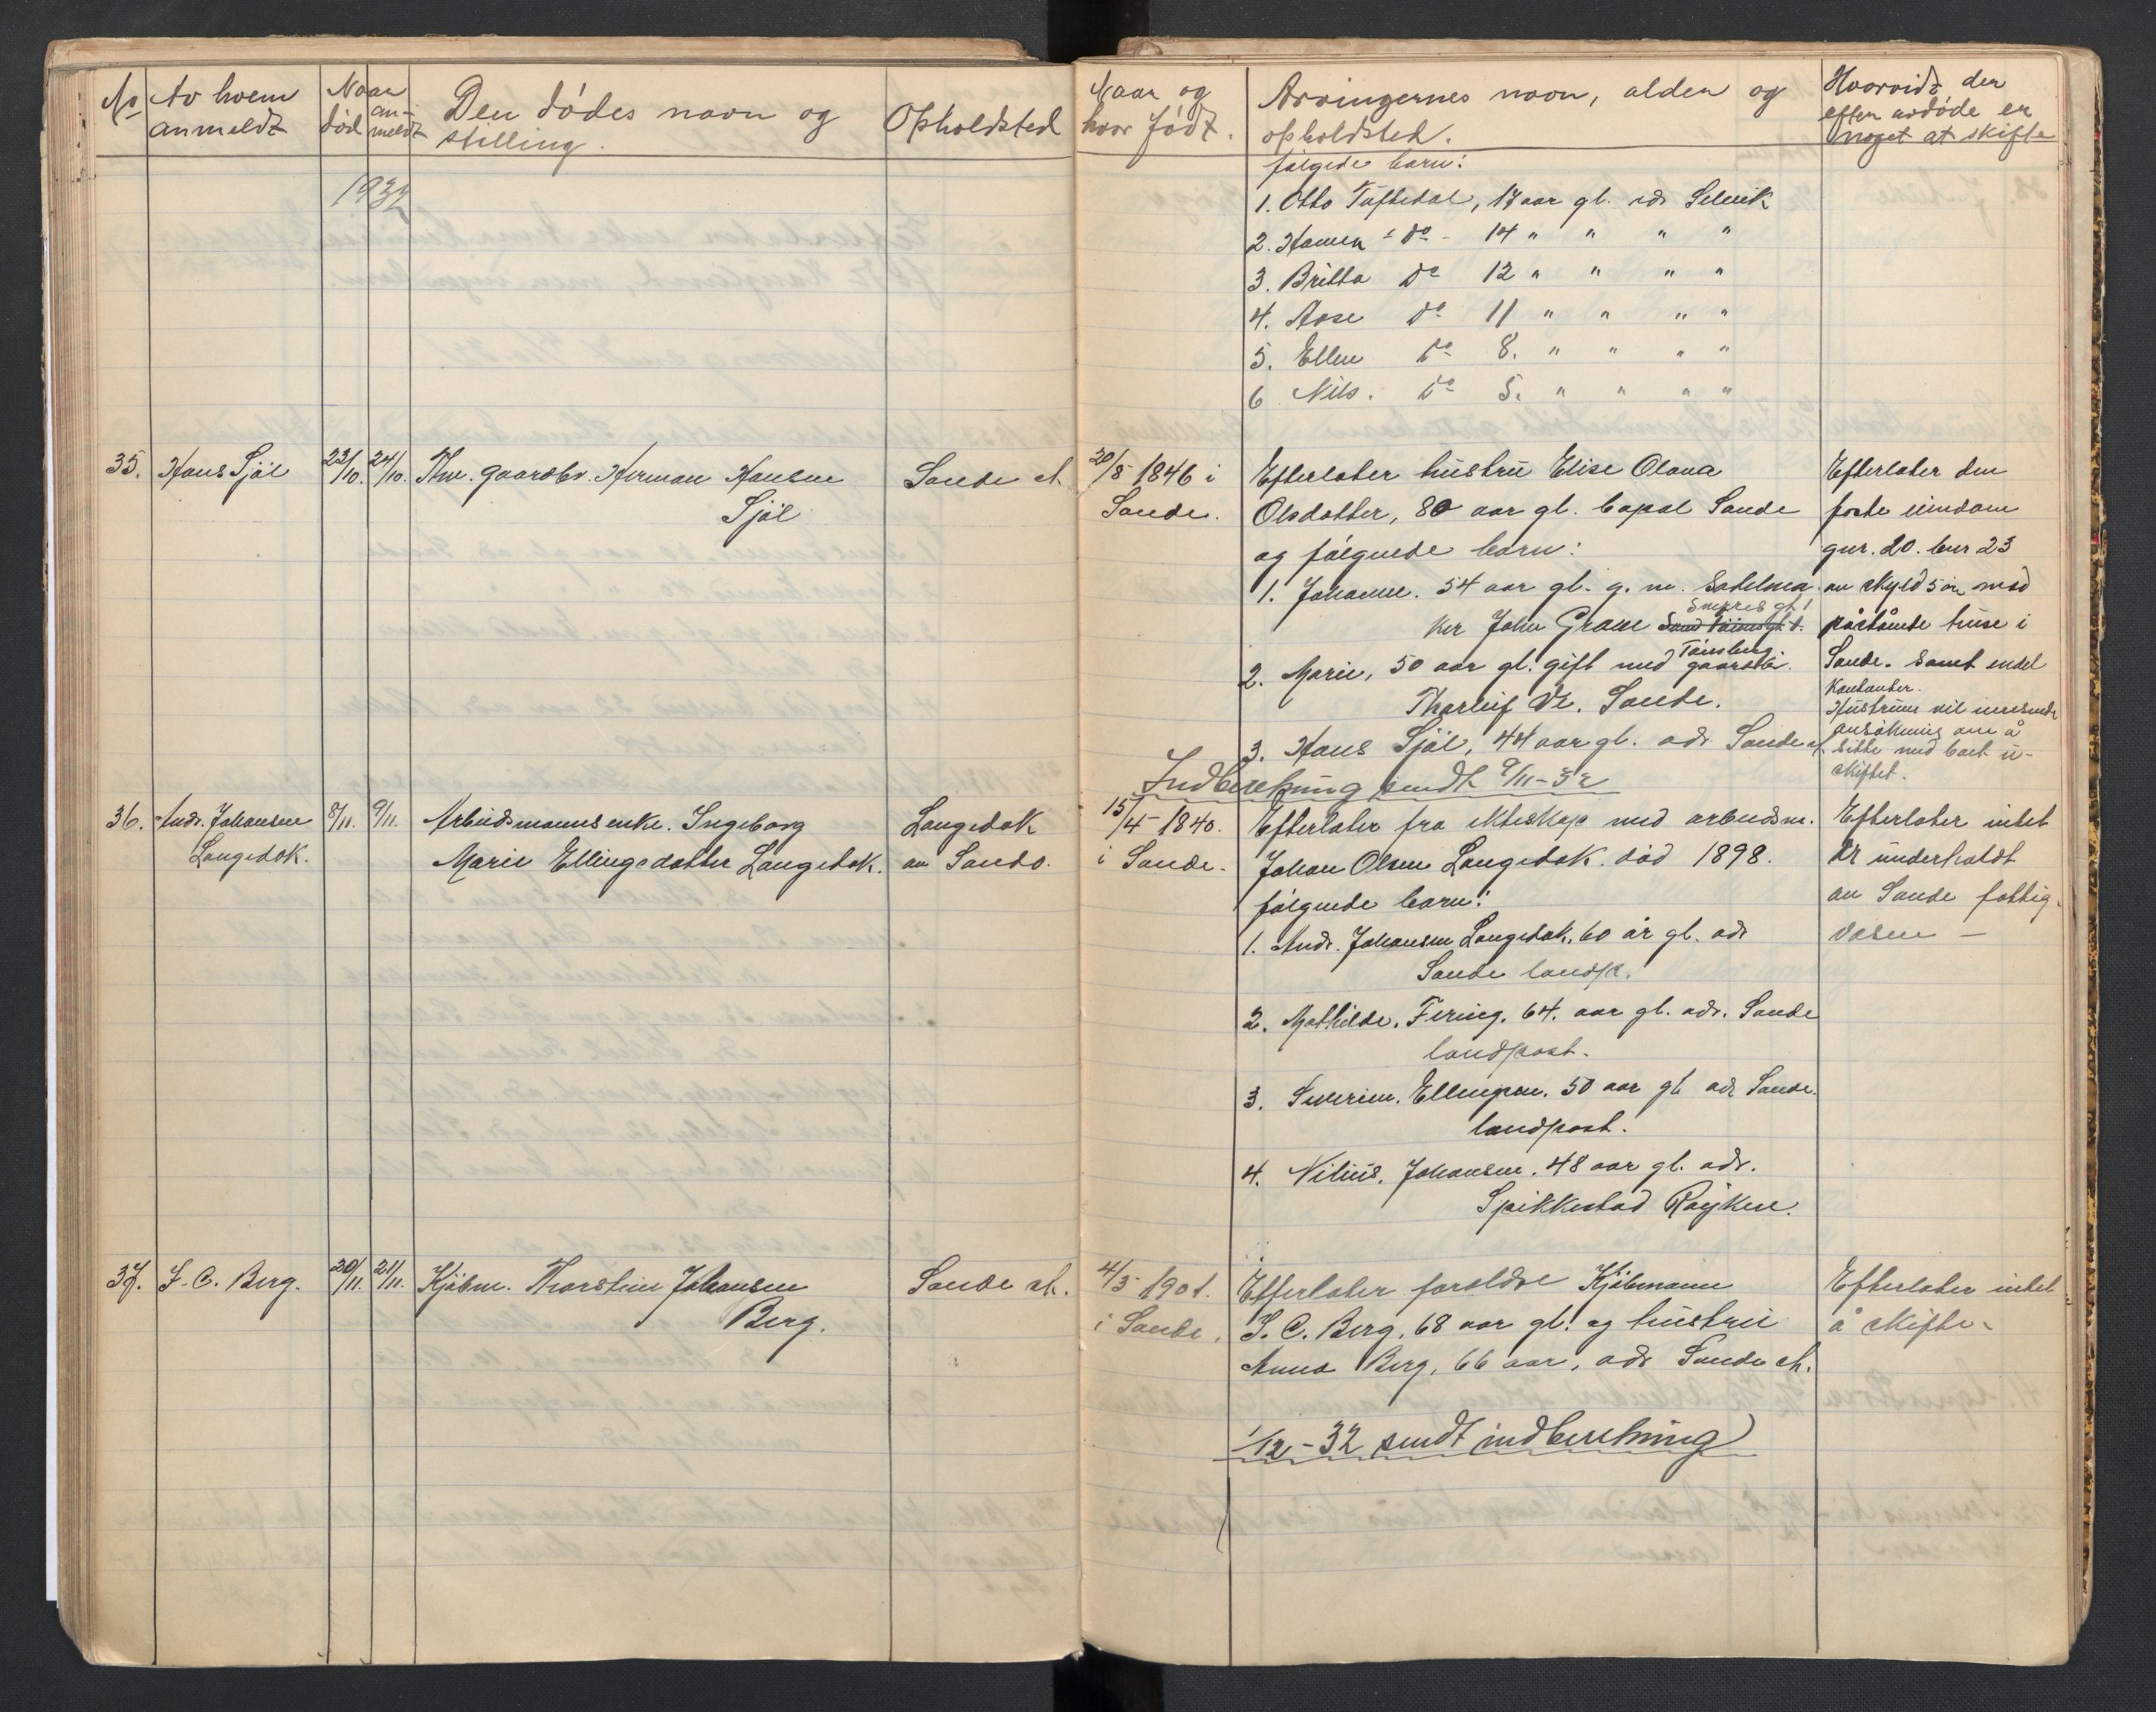 No
Av hvem
anmeldt
Naar
død
an-
meldt
Den dødes navn og
stilling.
Opholdsted
Naar og
hvor født.
Arvingernes navn, alder og
opholdsted.
Hvorvidt der
efter avdøde er
noget at skifte
1932
følgede barn:
1. Otto Tuftedal, 17 aar gl. adr Selvik
2. do - 14 " " " "
3. Britta do 12 " " " "
4. Aase do 11 " " " "
5. Ellen do 8. " " " "
6 Nils. do 5. " " " "
35. Hans Sjøl 23/10. 24/10. Fhv. gaardbr. Herman Hansen Sande st. 20/5 1846 i Efterlater hustru Elise Olava Efterlater den
Sjøl Sande. Olsdatter, 80 aar gl. bopæl Sande faste eiendom
og følgende barn: gnr. 20. bnr 23
1. Johanne. 54 aar gl. g. m. Sadelma- av skyld 5 øre med
Smiesgt 1
ker John Grane påstående huse i
Tønsberg.
2. Marie, 50 aar gl. gift med gaardbr. Sande. Samt endel
Thorleif Ve. Sande. Kontanter.
Hustruen vil innsende
ansøkning om å
3. Hans Sjøl, 44 aar gl. adr Sande st sitte med boet u-
skiftet.
Indberetning sendt 9/11-32
36. Andr. Johansen 8/11. 9/11. Arbeidsmannsenke. Ingeborg Langedok 15/4-1840. Efterlater fra ekteskap med arbeidsm. Efterlater intet
Langedok. Marie Ellingsdatter Langedok. av Sande. i Sande. Johan Olsen Langedok. død 1898. Er underholdt
følgende barn: av Sande fattig-
1. Andr. Johansen Langedok. 60 år gl. adr vesen -
Sande landp.
2. Mathilde. Fering. 64. aar gl. adr. Sande
landpost.
3. Severin. Ellingsen. 50 aar gl adr Sande.
landpost.
4. Nilius. Johansen. 48 aar gl. adr.
Spikkestad Røyken.
37. J. C. Berg. 20/11. 21/11. Kjøbm. Thorstein Johansen Sande st. 4/5 1901. Efterlater foreldre Kjøbmann Efterlater intet
Berg. i Sande. J. C. Berg. 68 aar gl. og hustru å skifte.
Anna Berg, 66 aar, adr Sande st.
1/12-32 sendt indberetning